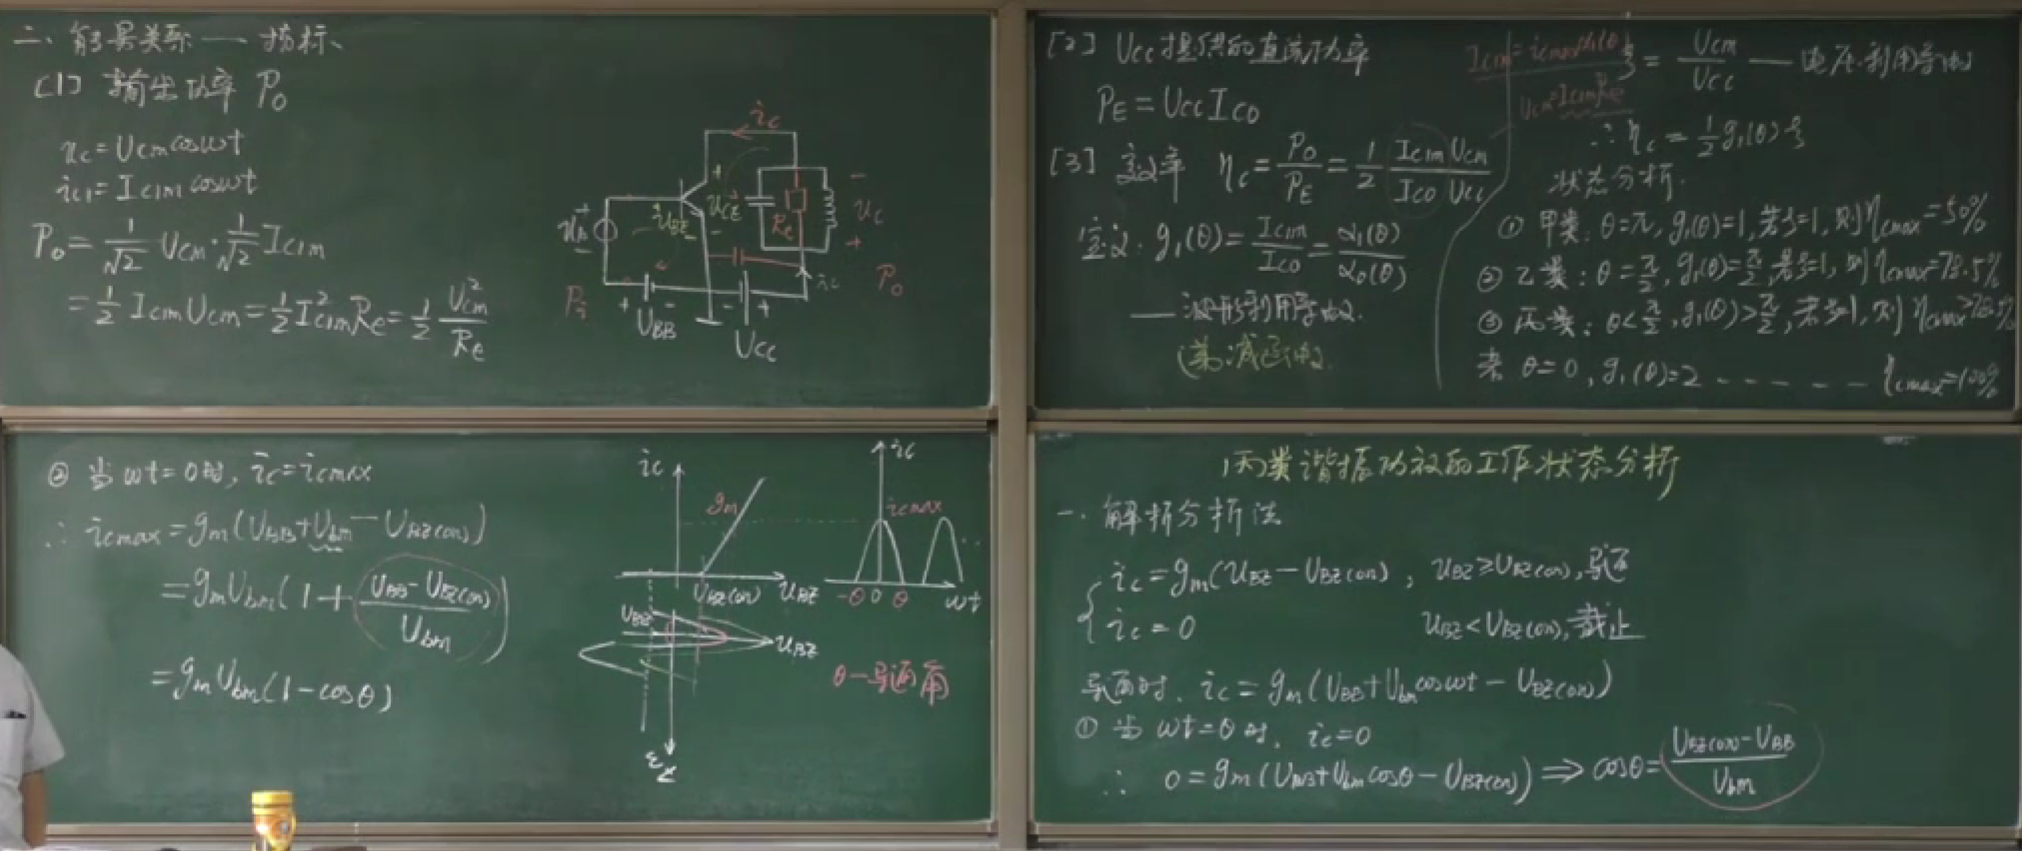 二、能量关系 — 指标、
[1] 输出功率 P₀
u_c = U_cm cosωt
i_c1 = I_c1m cosωt
P₀ = 1/√2 U_cm · 1/√2 I_c1m
= 1/2 I_c1m U_cm = 1/2 I²_c1m R_e = 1/2 U²_cm/R_e
i_c
u_b
u_BE
u_CE
R_e
u_c
P_i
U_BB
U_CC
i_c
P₀
[2] U_CC 提供的直流功率
P_E = U_CC I_C0
[3] 效率 η_c = P₀/P_E = 1/2 I_c1m U_cm / I_C0 U_CC
定义: g₁(θ) = I_c1m/I_C0 = α₁(θ)/α₀(θ)
— 波形利用系数.
(递减函数)
U_cm = I_c1m R_e
ξ = U_cm/U_CC — 电压利用系数
∴ η_c = 1/2 g₁(θ) ξ
状态分析.
① 甲类: θ=π, g₁(θ)=1, 若ξ=1, 则 η_cmax=50%
② 乙类: θ=π/2, g₁(θ)=π/2, 若ξ=1, 则 η_cmax=78.5%
③ 丙类: θ<π/2, g₁(θ)>π/2, 若ξ=1, 则 η_cmax>78.5%
若 θ=0, g₁(θ)=2 - - - - - - η_cmax=100%
② 当 ωt=0时, i_c=i_cmax
∴ i_cmax = g_m(U_BB+U_bm−U_BZ(on))
= g_m U_bm(1 + (U_BB−U_BZ(on))/U_bm)
= g_m U_bm(1−cosθ)
i_c
g_m
U_BZ(on) u_BZ
U_BB
u_BZ
i_c
i_cmax
-θ 0 θ ωt
θ—导通角
丙类谐振功放的工作状态分析
一. 解析分析法
i_c = g_m(u_BZ−U_BZ(on)), u_BZ≥U_BZ(on), 导通
i_c = 0 u_BZ<U_BZ(on), 截止
导通时, i_c = g_m(U_BB+U_bm cosωt−U_BZ(on))
① 当 ωt=θ时, i_c=0
∴ 0 = g_m(U_BB+U_bm cosθ−U_BZ(on)) ⇒ cosθ = (U_BZ(on)−U_BB)/U_bm